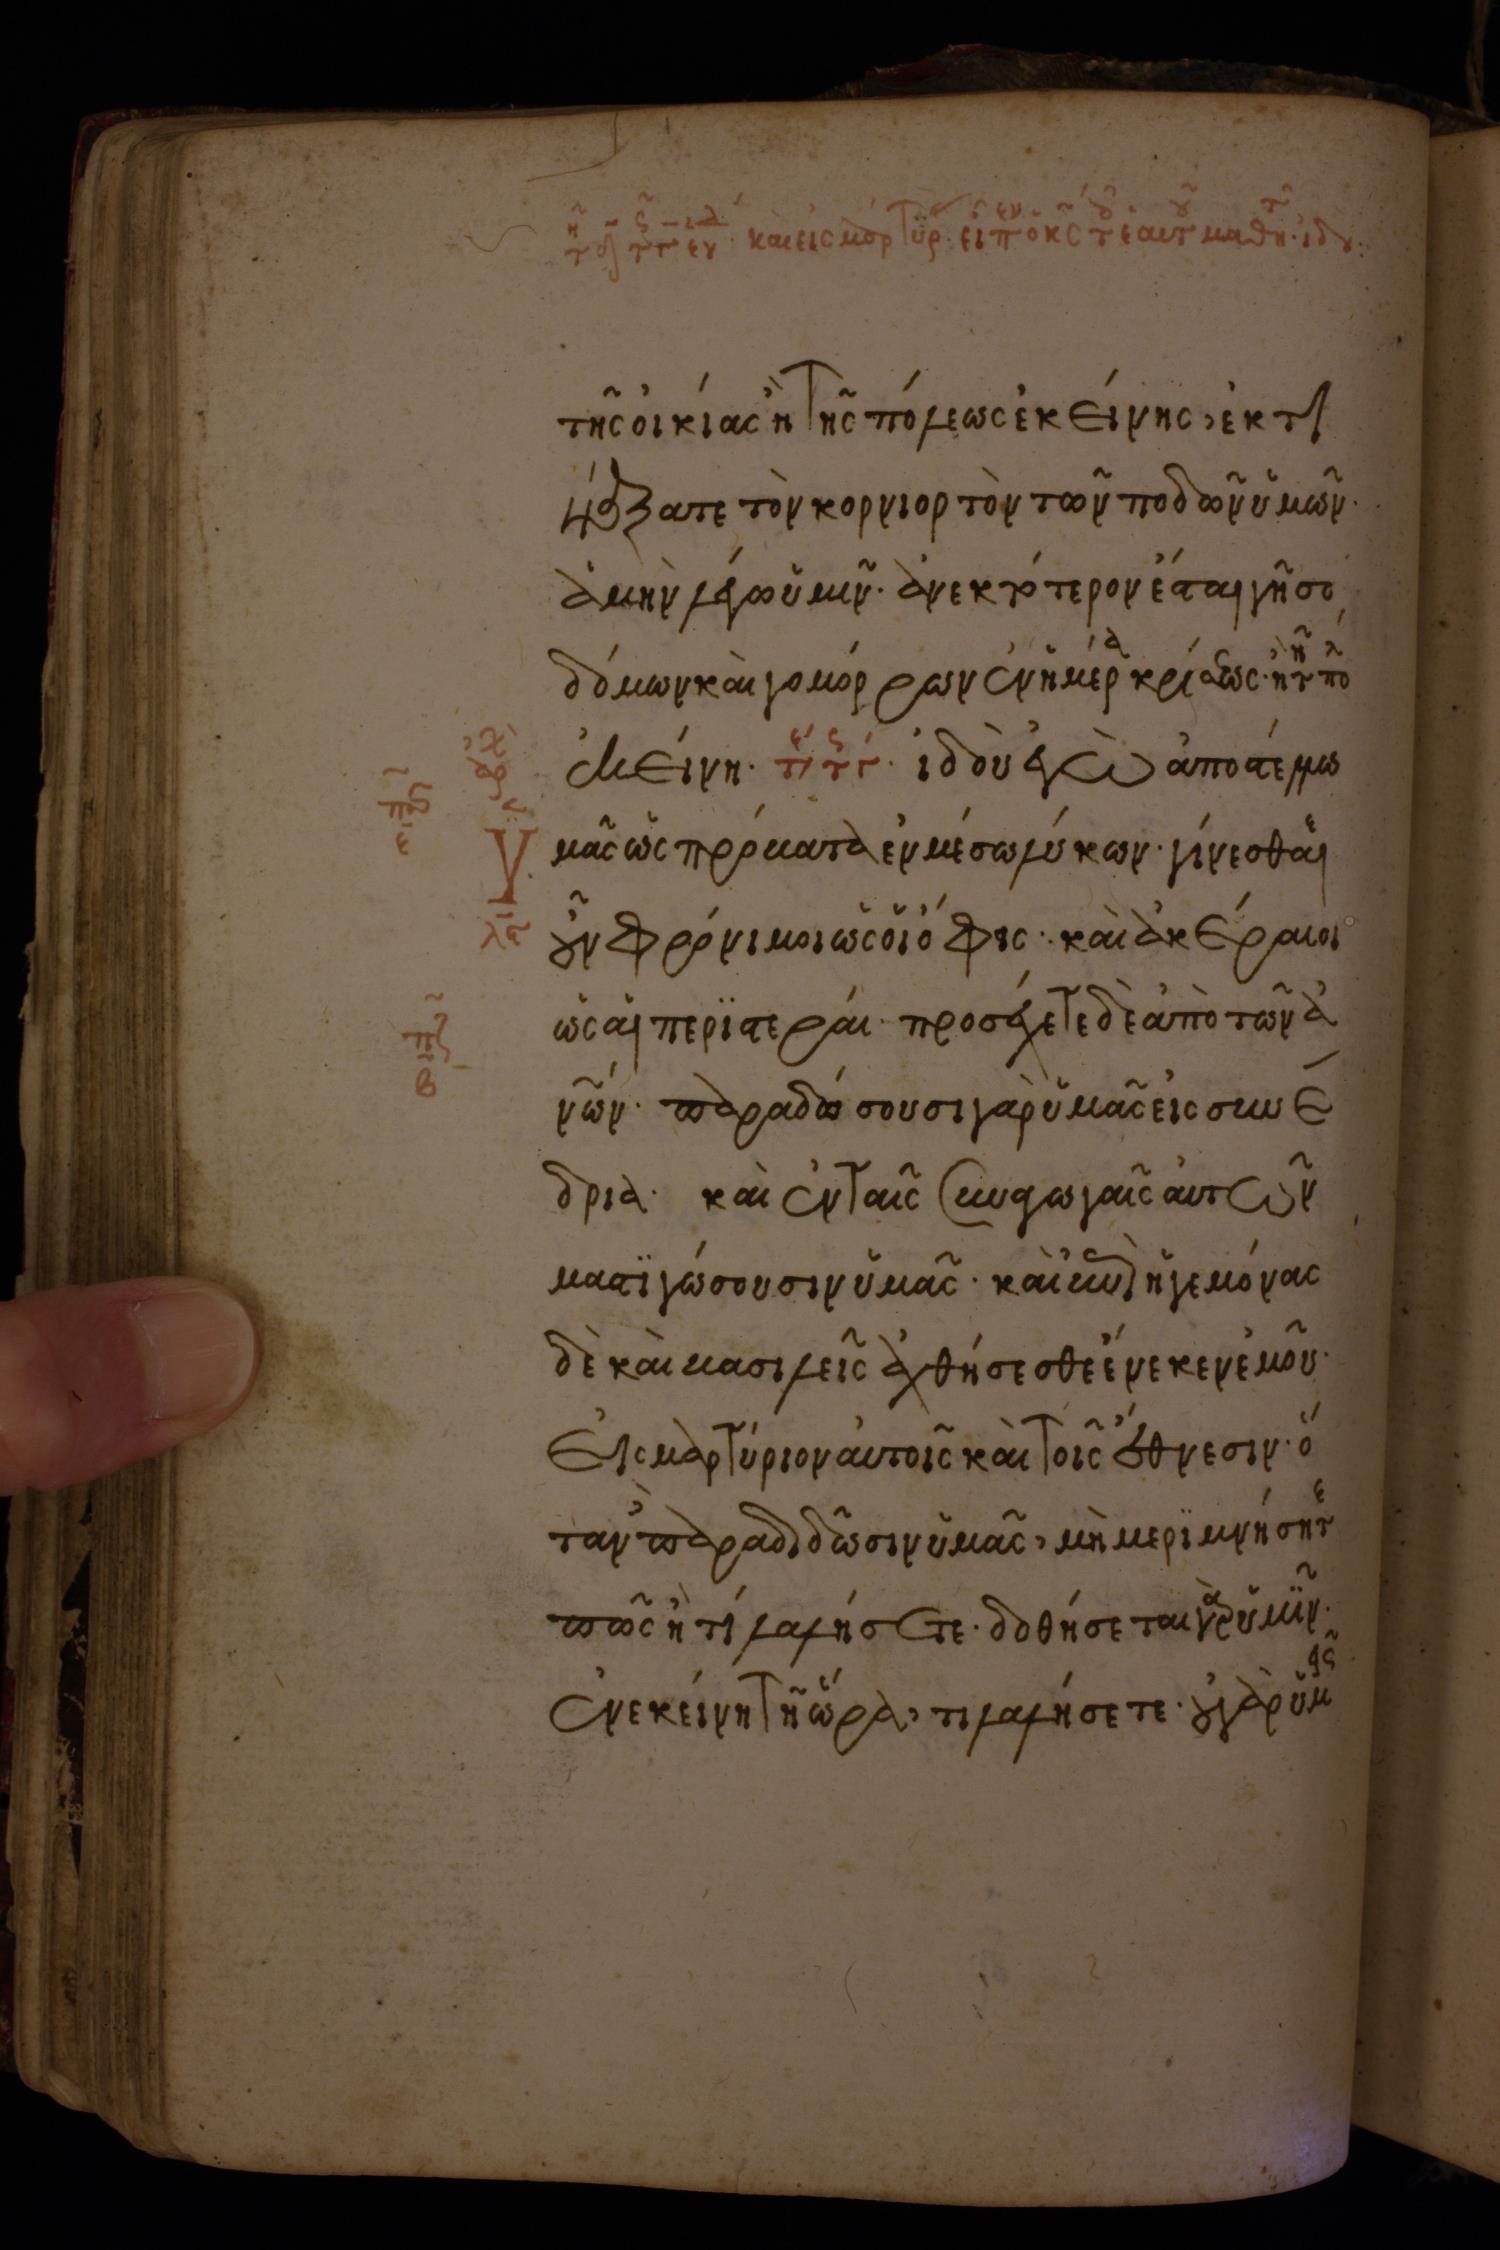 καὶ εἰς μάρτυρ εἶπ ὁ κς τ ἑαυτ μαθη ἰδου
τῆς οἰκίας ἢ τῆς πόλεως ἐκείνης, ἐκτι
νάξατε τὸν κορνιορτὸν τῶν ποδῶν ὑμῶν·
ἀμὴν λέγω ὑμῖν· ἀνεκτότερον ἔσται γῆ σο
δόμων καὶ γομόρρων ἐν ἡμέρα κρίσεως· ἢ τῆ πολ
ἐκείνη· τέ τς τ· ἰδοὺ ἐγὼ ἀποστέλλω
ὑ
μᾶς ὡς πρόβατα ἐν μέσω λύκων· γίνεσθαι
λα
οὖν φρόνιμοι ὡς οἱ ὄφις· καὶ ἀκέραιοι
ὡς αἱ περϊστεραί· προσέχετε δὲ ἀπὸ τῶν ἀ
νῶν· παραδώσουσι γὰρ ὑμᾶς εἰς συνέ
δρια· καὶ ἐν ταῖς συναγωγαῖς αὐτῶν
μαστϊγώσουσιν ὑμᾶς· καὶ ἐπὶ ἡγεμόνας
δὲ καὶ βασιλεῖς ἀχθήσεσθε ἕνεκεν ἐμοῦ·
εἰς μαρτύριον αὐτοῖς καὶ τοῖς ἔθνεσιν· ὅ
ταν παραδιδῶσιν ὑμᾶς, μὴ μερϊμνήσητε
πῶς ἢ τί λαλήσετε· δοθήσεται γὰρ ὑμῖν·
ἐν εκείνη τῆ ὥρα, τι λαλήσετε· οὐ γὰρ ὑμεῖς